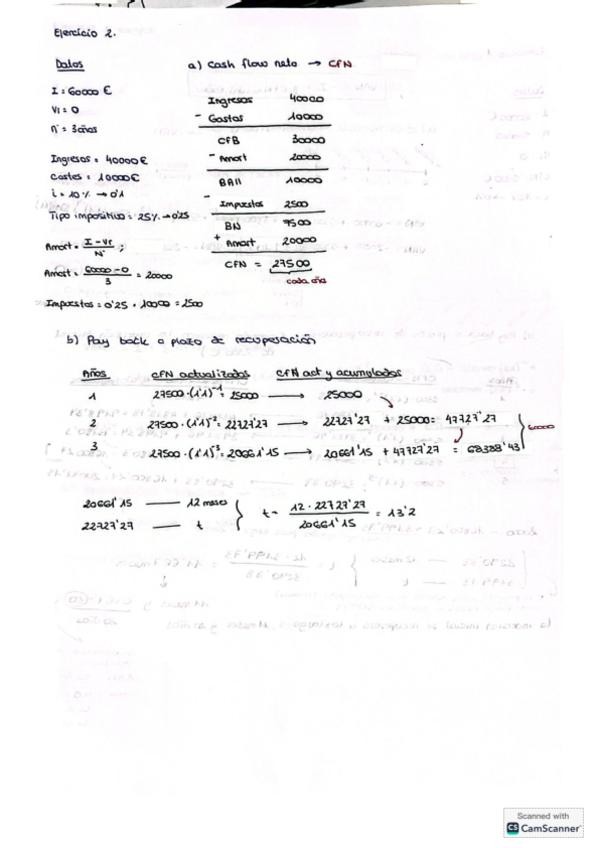 Ejercicio 2.
Datos
I = 60000 €
Vr = 0
n = 3 años
Ingresos = 40000 €
Costes = 10000 €
i = 10% → 0'1
Tipo impositivo = 25% → 0'25
Amort = I - Vr / N ;
Amort = 60000 - 0 / 3 = 20000
Impuestos = 0'25 · 10000 = 2500
a) Cash flow neto → CFN
Ingresos 40000
- Gastos 10000
CFB 30000
- Amort 20000
BAII 10000
- Impuestos 2500
BN 7500
+ Amort 20000
CFN = 27500
cada año
b) Pay back o plazo de recuperación
Años CFN actualizados CFN act y acumulados
1 27500 · (1'1)⁻¹ = 25000 → 25000
2 27500 · (1'1)⁻² = 22727'27 → 22727'27 + 25000 = 47727'27
3 27500 · (1'1)⁻³ = 20661'15 → 20661'15 + 47727'27 = 68388'43
60000
20661'15 — 12 meses
22727'27 — t
t = 12 · 22727'27 / 20661'15 = 13'2
Scanned with
CS CamScanner